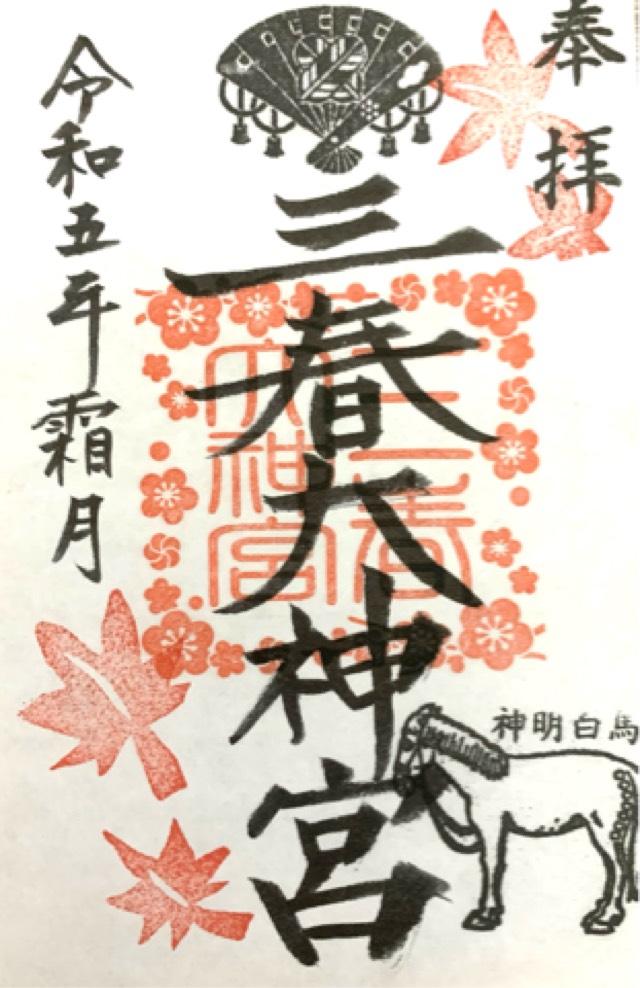 奉拝
三春大神宮
三春
大神宮
令和五年霜月
神明白馬